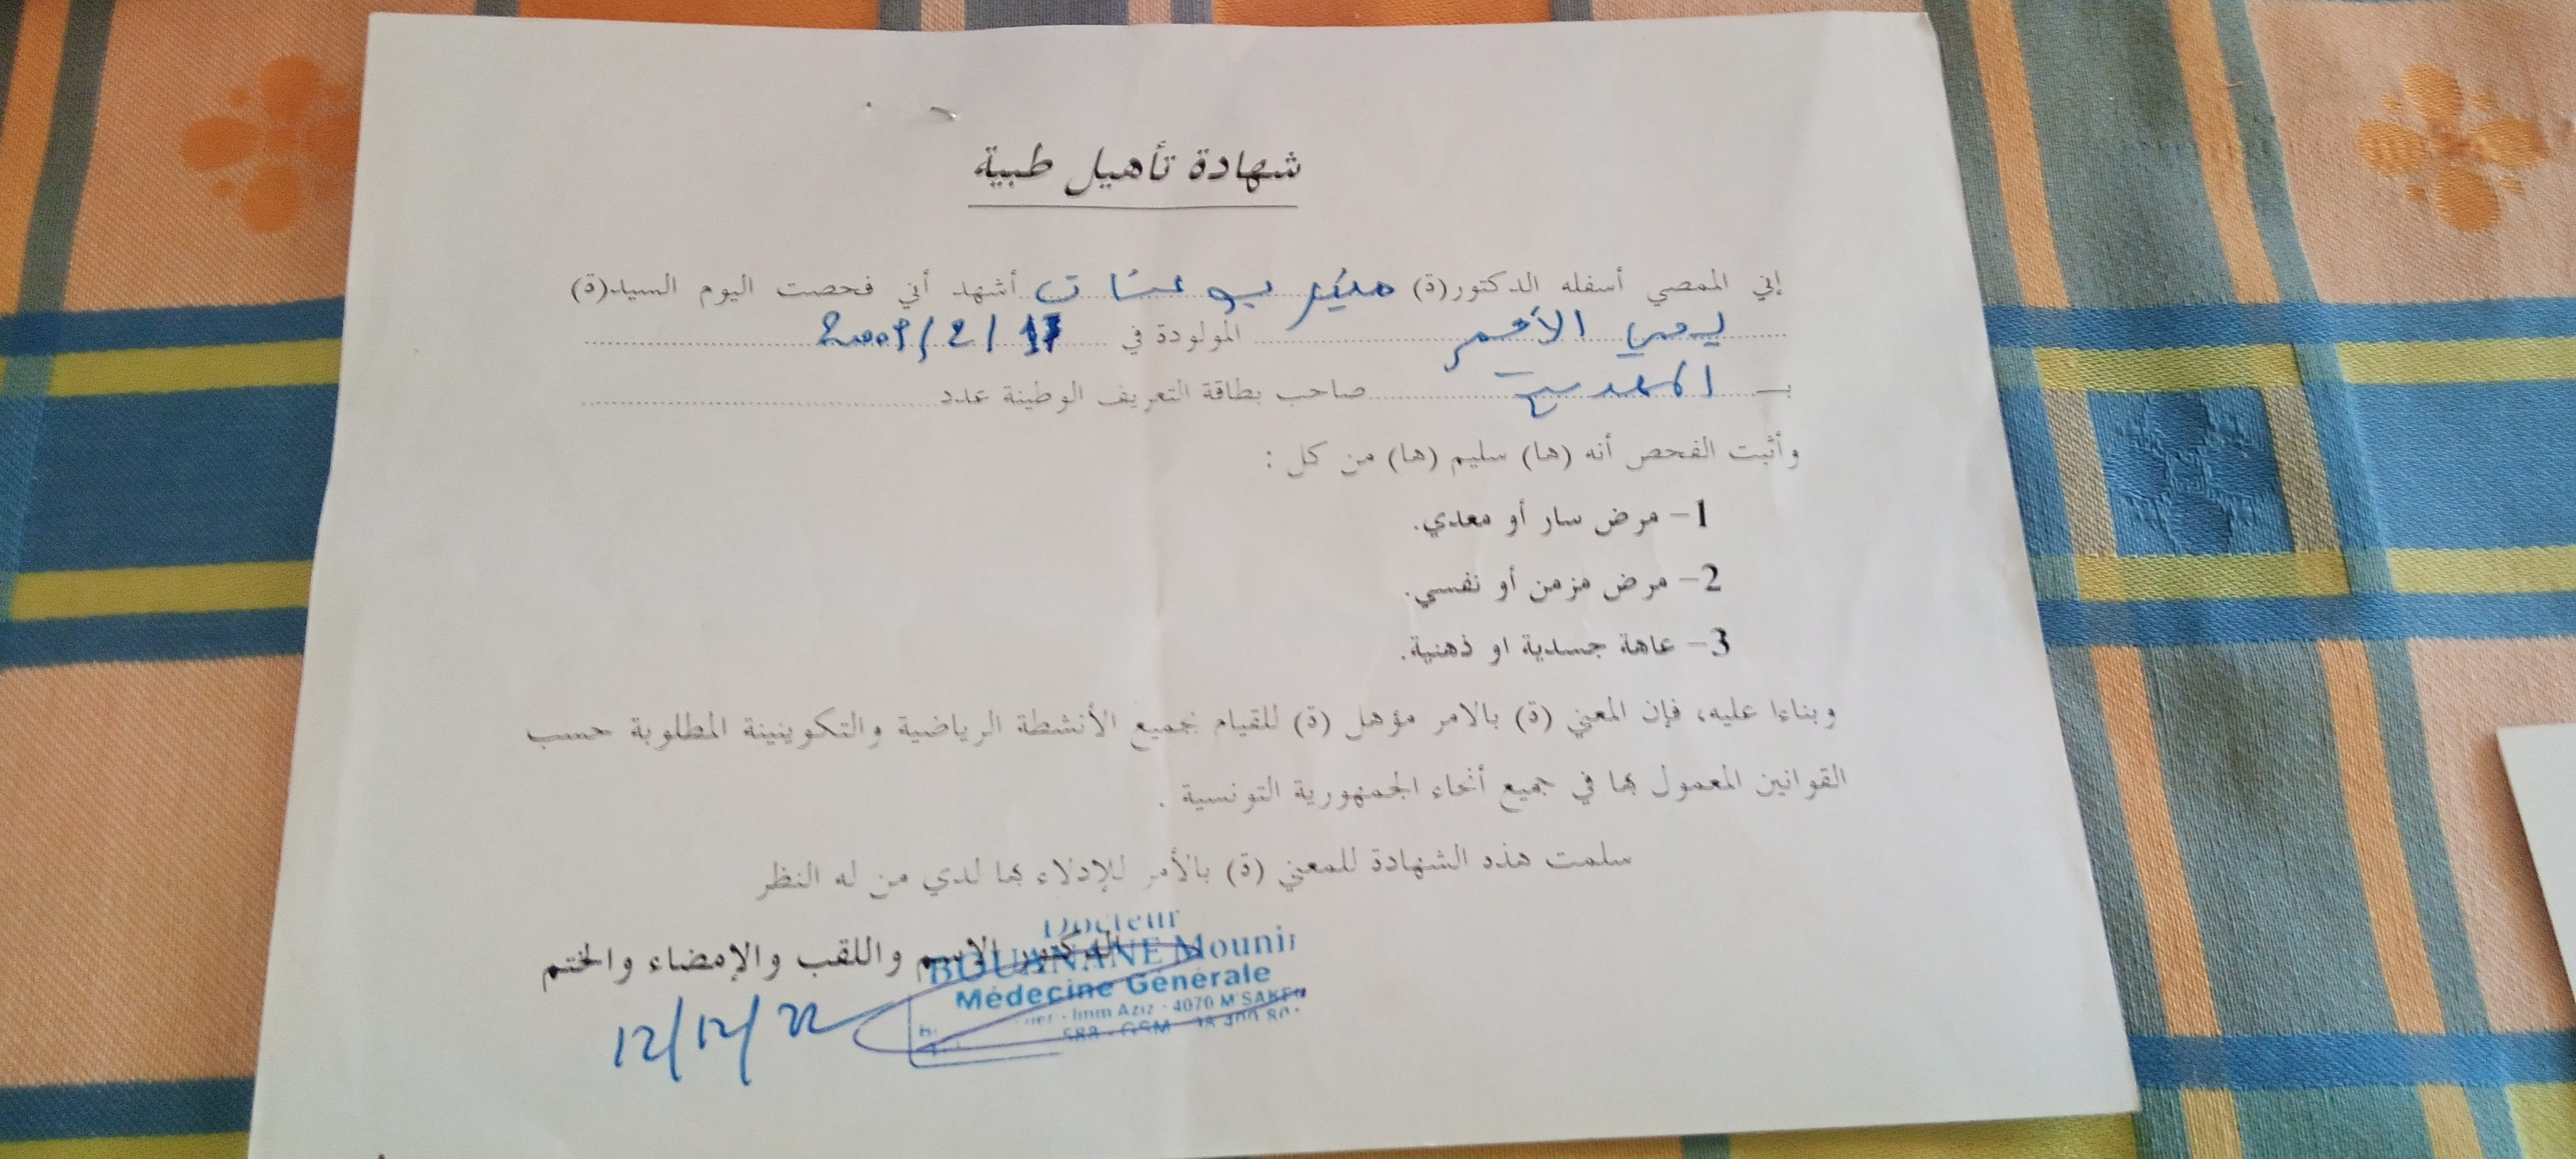 شهادة تأهيل طبية
إني الممضي أسفله الدكتور(ة) منير بوعنان أشهد أني فحصت اليوم السيد(ة)
الأحمر المولودة في 2009/2/17
بـ المهدية صاحب بطاقة التعريف الوطينة عدد
وأثبت الفحص أنه (ها) سليم (ها) من كل :
1- مرض سار أو معدي.
2- مرض مزمن أو نفسي.
3- عاهة جسدية او ذهنية.
وبناءا عليه، فإن المعني (ة) بالامر مؤهل (ة) للقيام بجميع الأنشطة الرياضية والتكوينينة المطلوبة حسب
القوانين المعمول بها في جميع أنحاء الجمهورية التونسية .
سلمت هذه الشهادة للمعني (ة) بالأمر للإدلاء بها لدي من له النظر
الاسم واللقب والإمضاء والختم
Docteur
BOUANANE Mounir
Médecine Générale
Imm Aziz - 4070 M'SAKEN
12/12/22